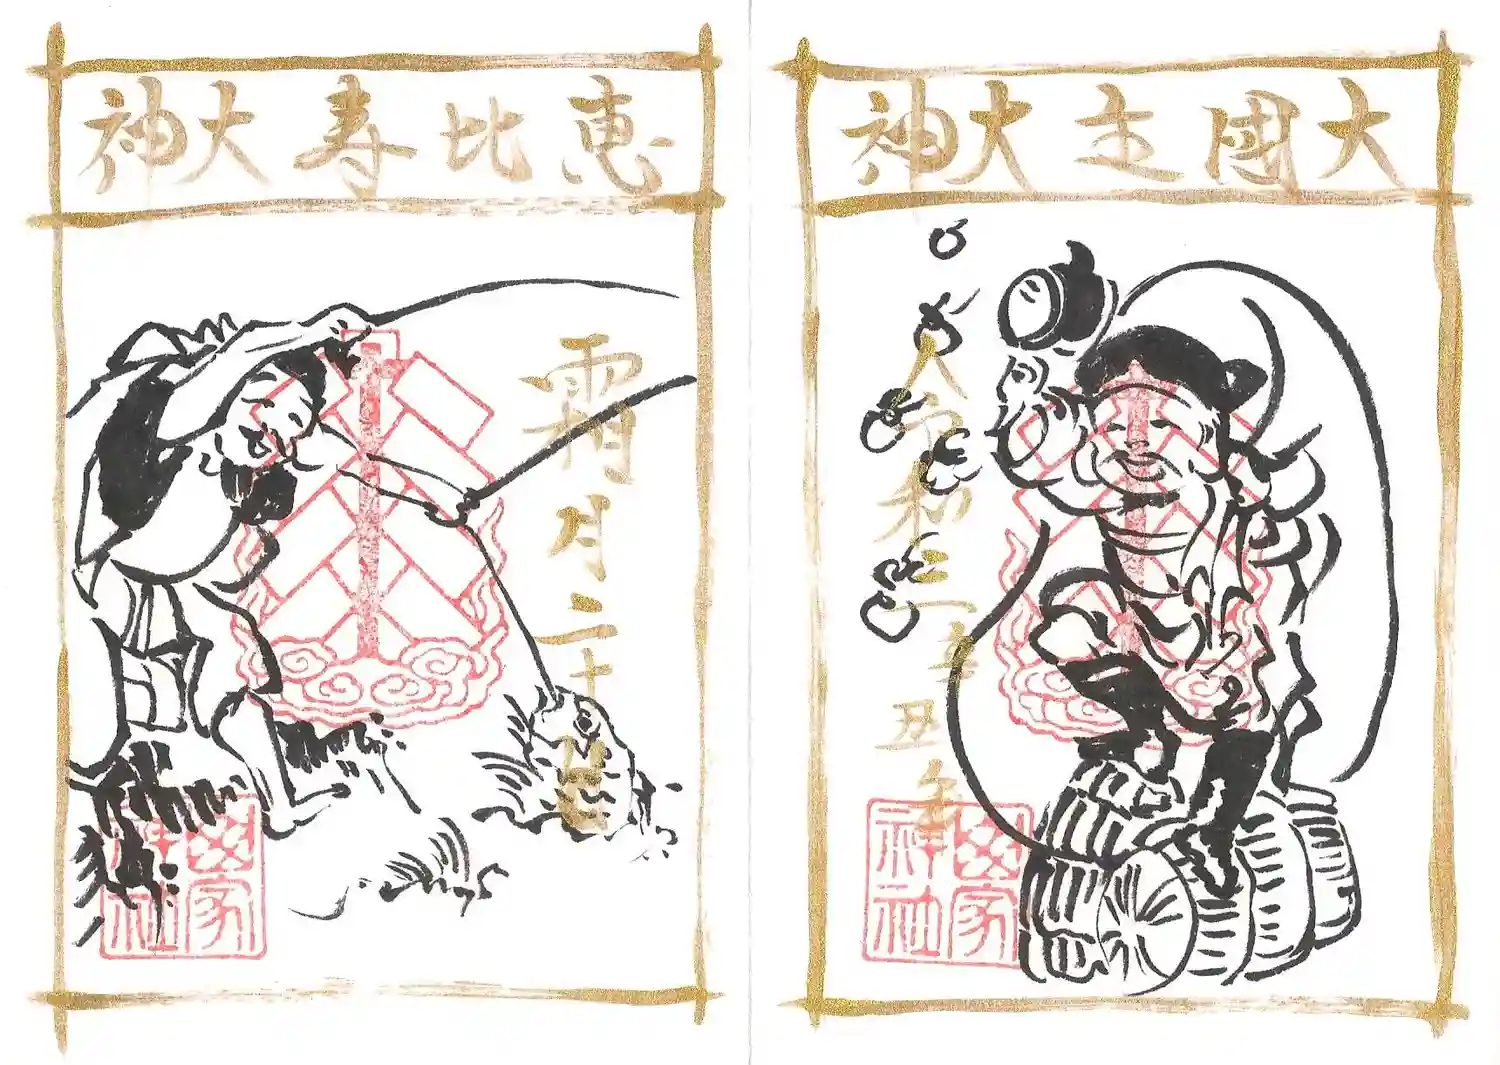 大國主大神
令和三
辛丑年
家神社
恵比寿大神
霜月二十
家神社